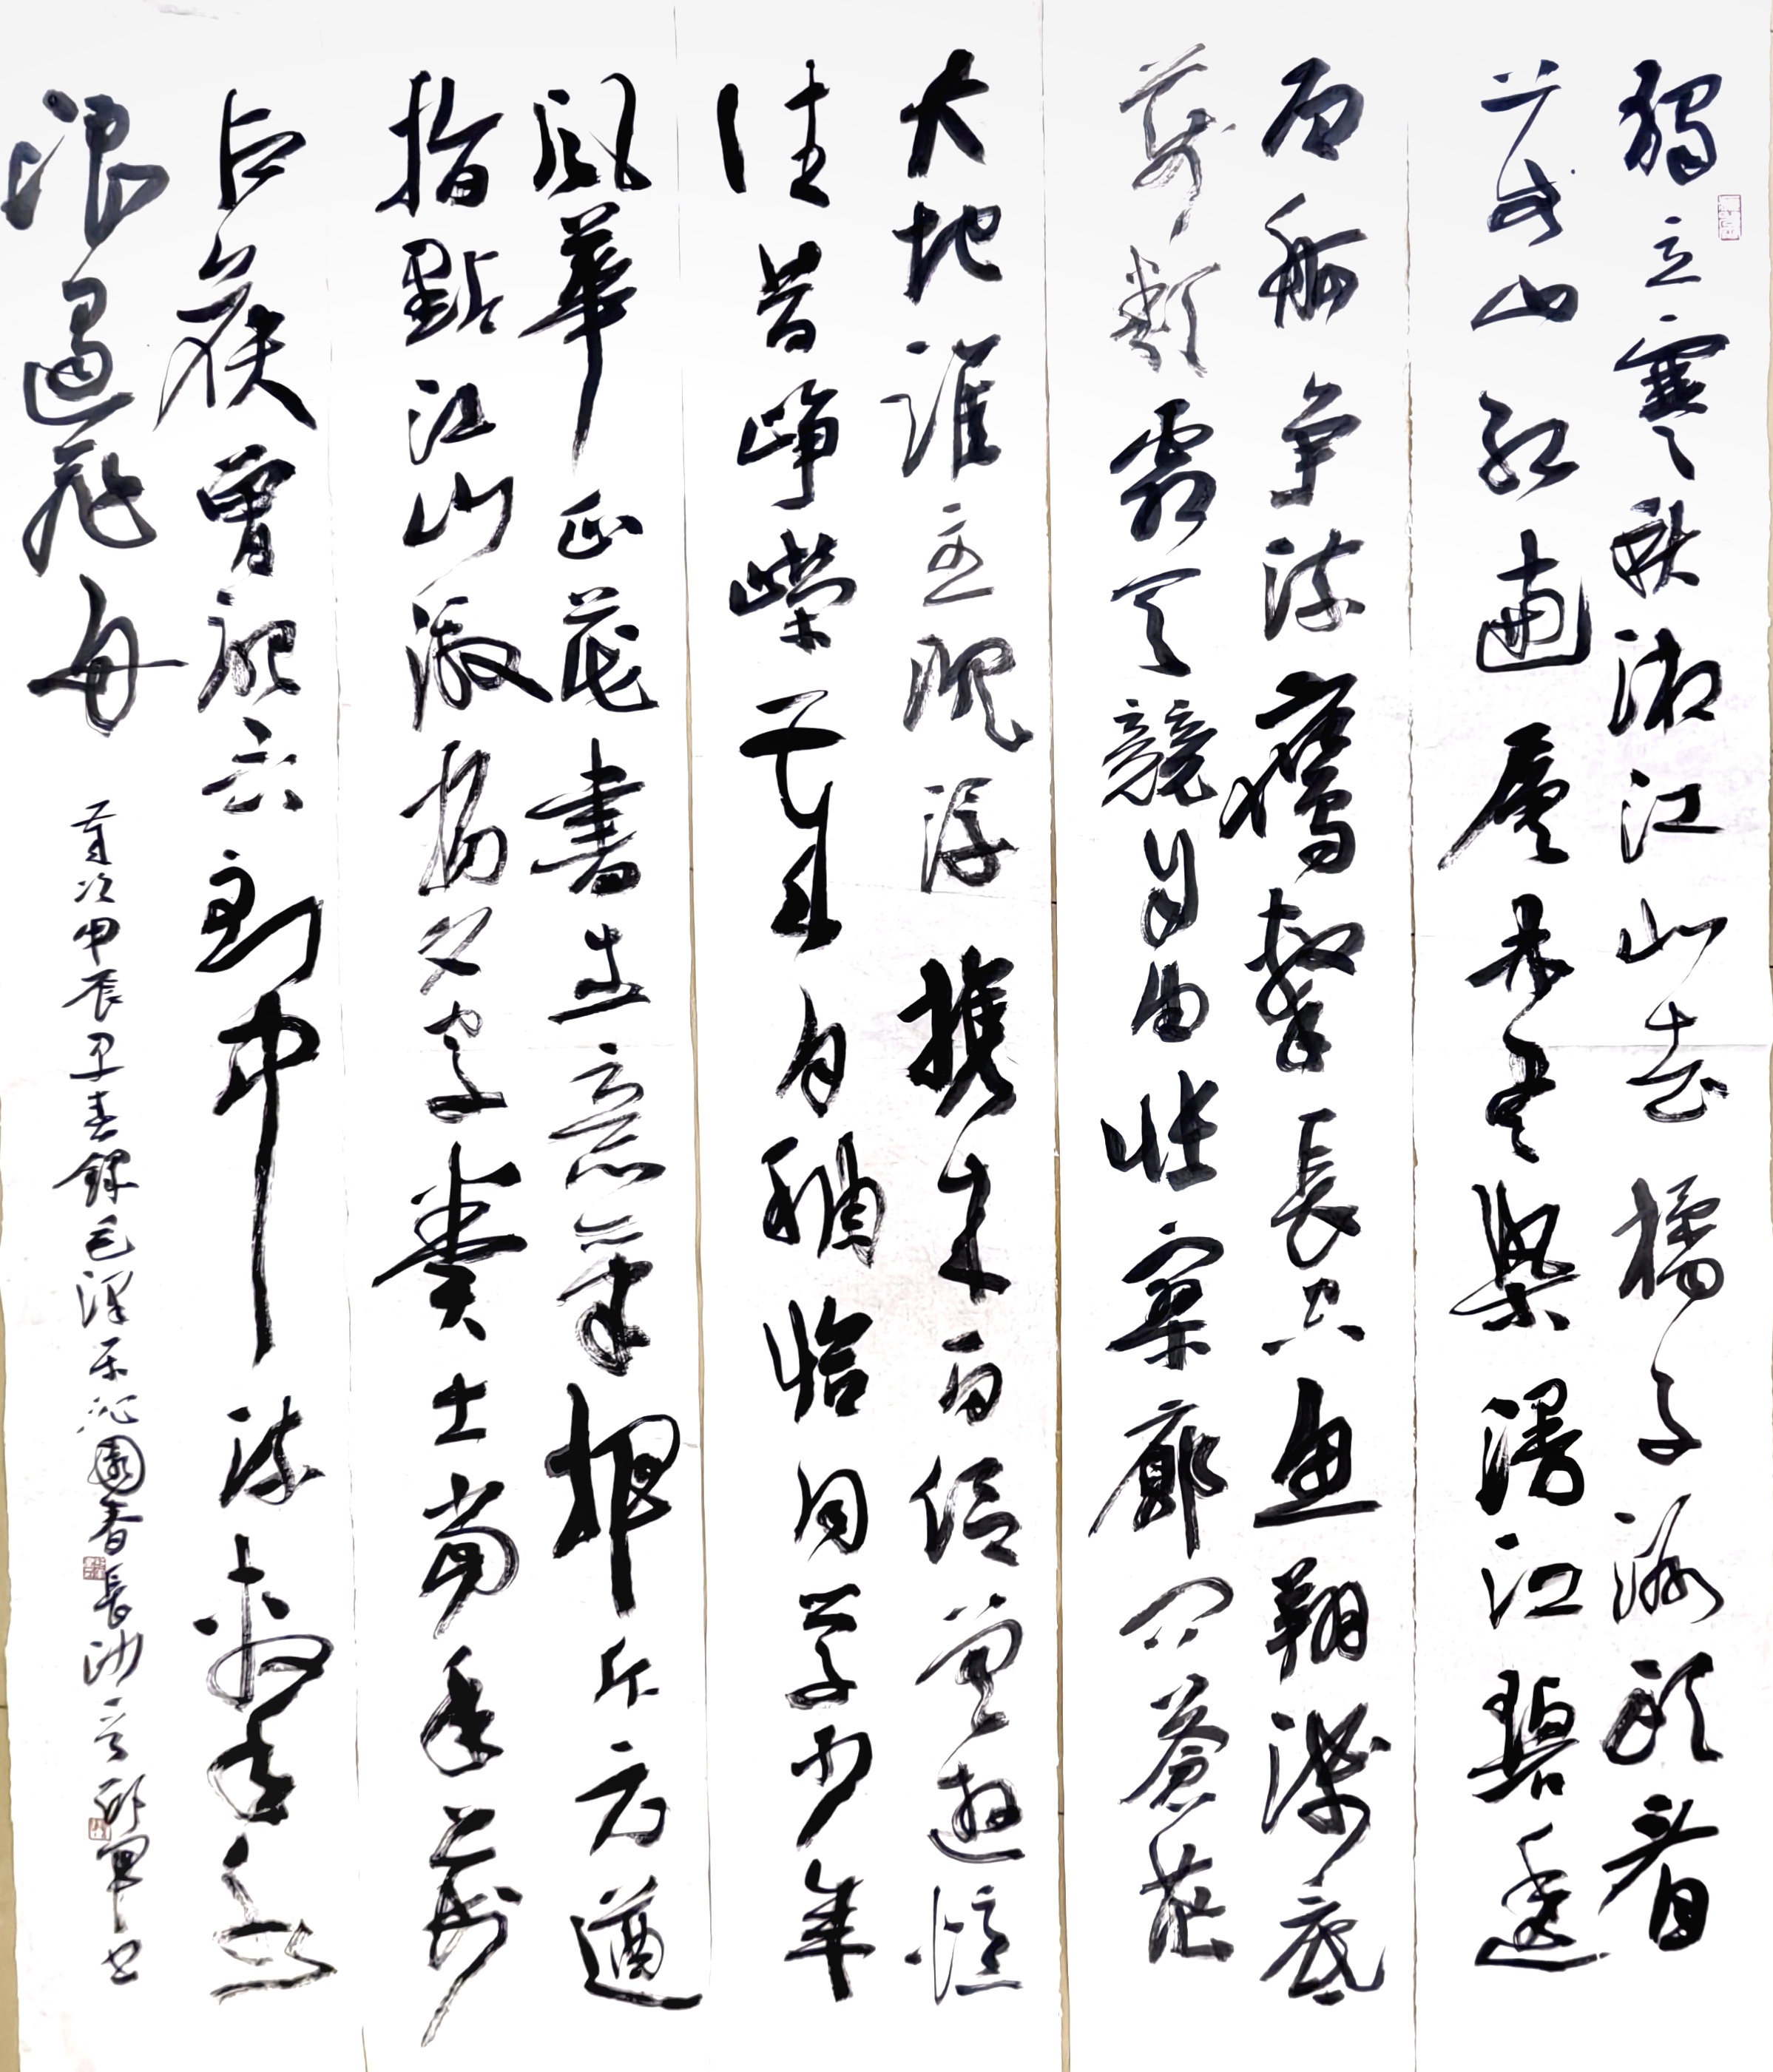 獨立寒秋湘江北去橘子洲頭看
萬山紅遍層林盡染漫江碧透
百舸爭流鷹擊長空魚翔淺底
萬類霜天競自由悵寥廓問蒼茫
大地誰主沉浮攜來百侶曾遊憶
往昔崢嶸歲月稠恰同學少年
風華正茂書生意氣揮斥方遒
指點江山激揚文字糞土當年萬
戶侯曾記否到中流擊水
浪遏飛舟
歲次甲辰早春錄毛澤東沁園春長沙 軍書